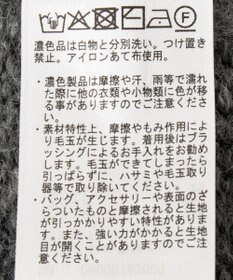 濃色品は白物と分別洗い。つけ置き
禁止。アイロンあて布使用。
・濃色製品は摩擦や汗、雨等で濡れ
た際に他の衣類や小物類に色が移
る事がありますのでご注意くださ
い。
・素材特性上、摩擦やもみ作用によ
り毛玉が生じます。着用後はブラ
ッシングによるお手入れをお勧め
します。毛玉ができてしまったら
引っぱらずに、ハサミや毛玉取り
器等で取り除いてください。
・バッグ、アクセサリーや表面のざ
らついたものと摩擦されると生地
が引っかかりやすい特性がありま
す。また、強い力がかかると生地
目が開くことがありますのでご注
意ください。